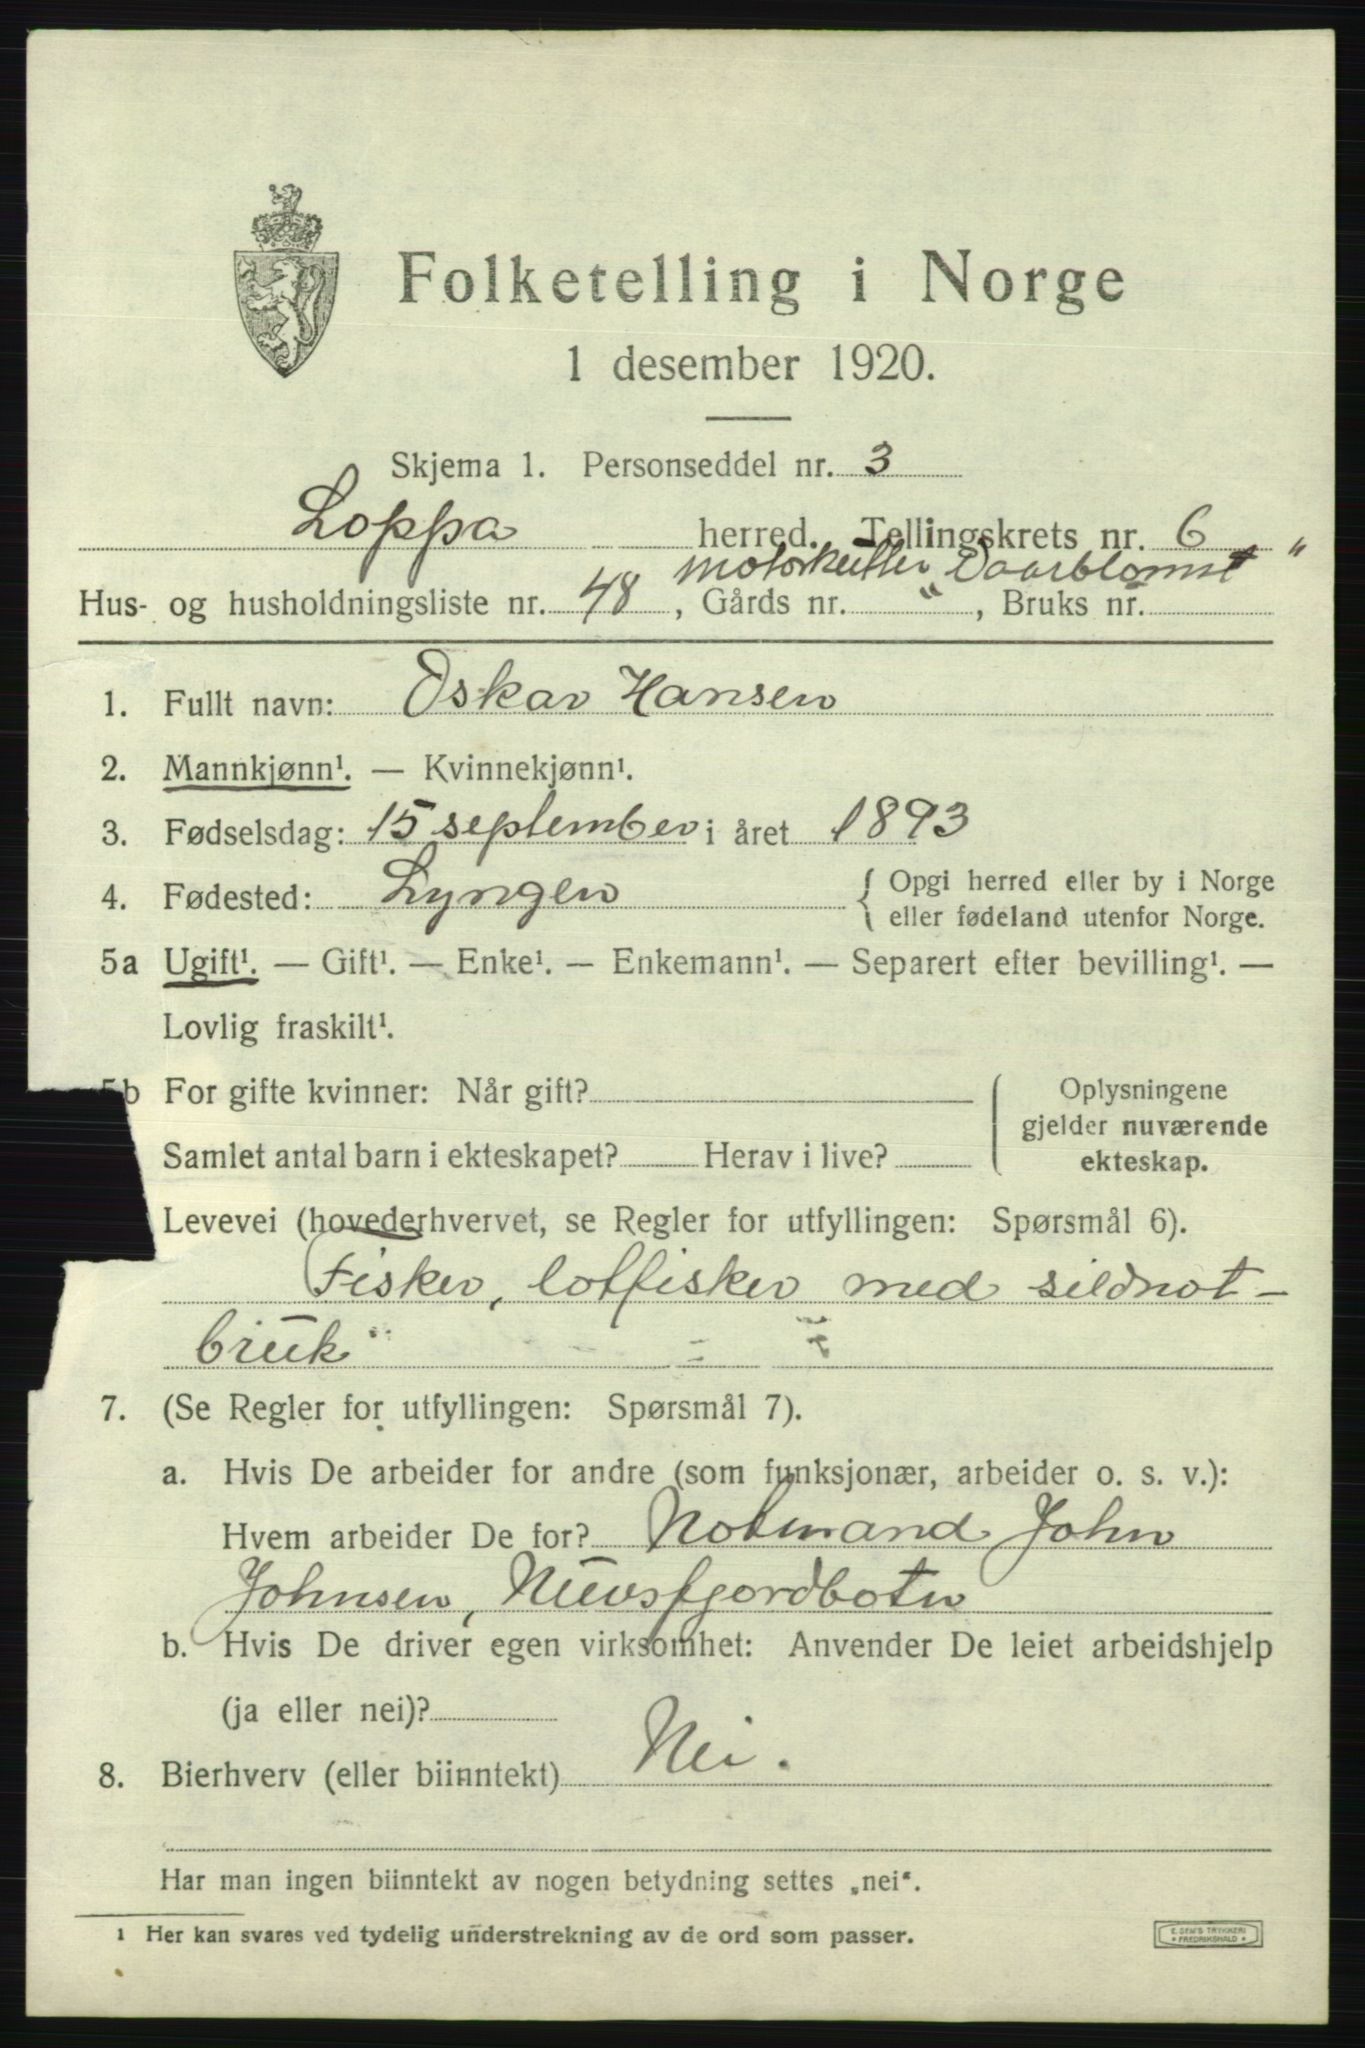 Folketelling i Norge
1 desember 1920.
Skjema 1. Personseddel nr. 3
Loppa herred. Tellingskrets nr. 6
Motorkutter „Vaarblomst“
Hus- og husholdningsliste nr. 48, Gårds nr. , Bruks nr.
1. Fullt navn: Oskar Hansen
2. Mannkjønn¹. — Kvinnekjønn¹.
3. Fødselsdag: 15 september i året 1893
4. Fødested: Lyngen { Opgi herred eller by i Norge
eller fødeland utenfor Norge.
5a Ugift¹. — Gift¹. — Enke¹. — Enkemann¹. — Separert efter bevilling¹. —
Lovlig fraskilt¹.
5b For gifte kvinner: Når gift?
Samlet antal barn i ekteskapet? Herav i live?
Oplysningene
gjelder nuværende
ekteskap.
Levevei (hovederhvervet, se Regler for utfyllingen: Spørsmål 6).
Fisker, lotfisker med sildnot-
bruk
7. (Se Regler for utfyllingen: Spørsmål 7).
a. Hvis De arbeider for andre (som funksjonær, arbeider o. s. v.):
Hvem arbeider De for? Notmand John
Johnsen, Nuvsfjordbotn
b. Hvis De driver egen virksomhet: Anvender De leiet arbeidshjelp
(ja eller nei)?
8. Bierhverv (eller biinntekt) Nei.
Har man ingen biinntekt av nogen betydning settes „nei“.
1 Her kan svares ved tydelig understrekning av de ord som passer.
E. SEM'S TRYKKERI
FREDRIKSHALD